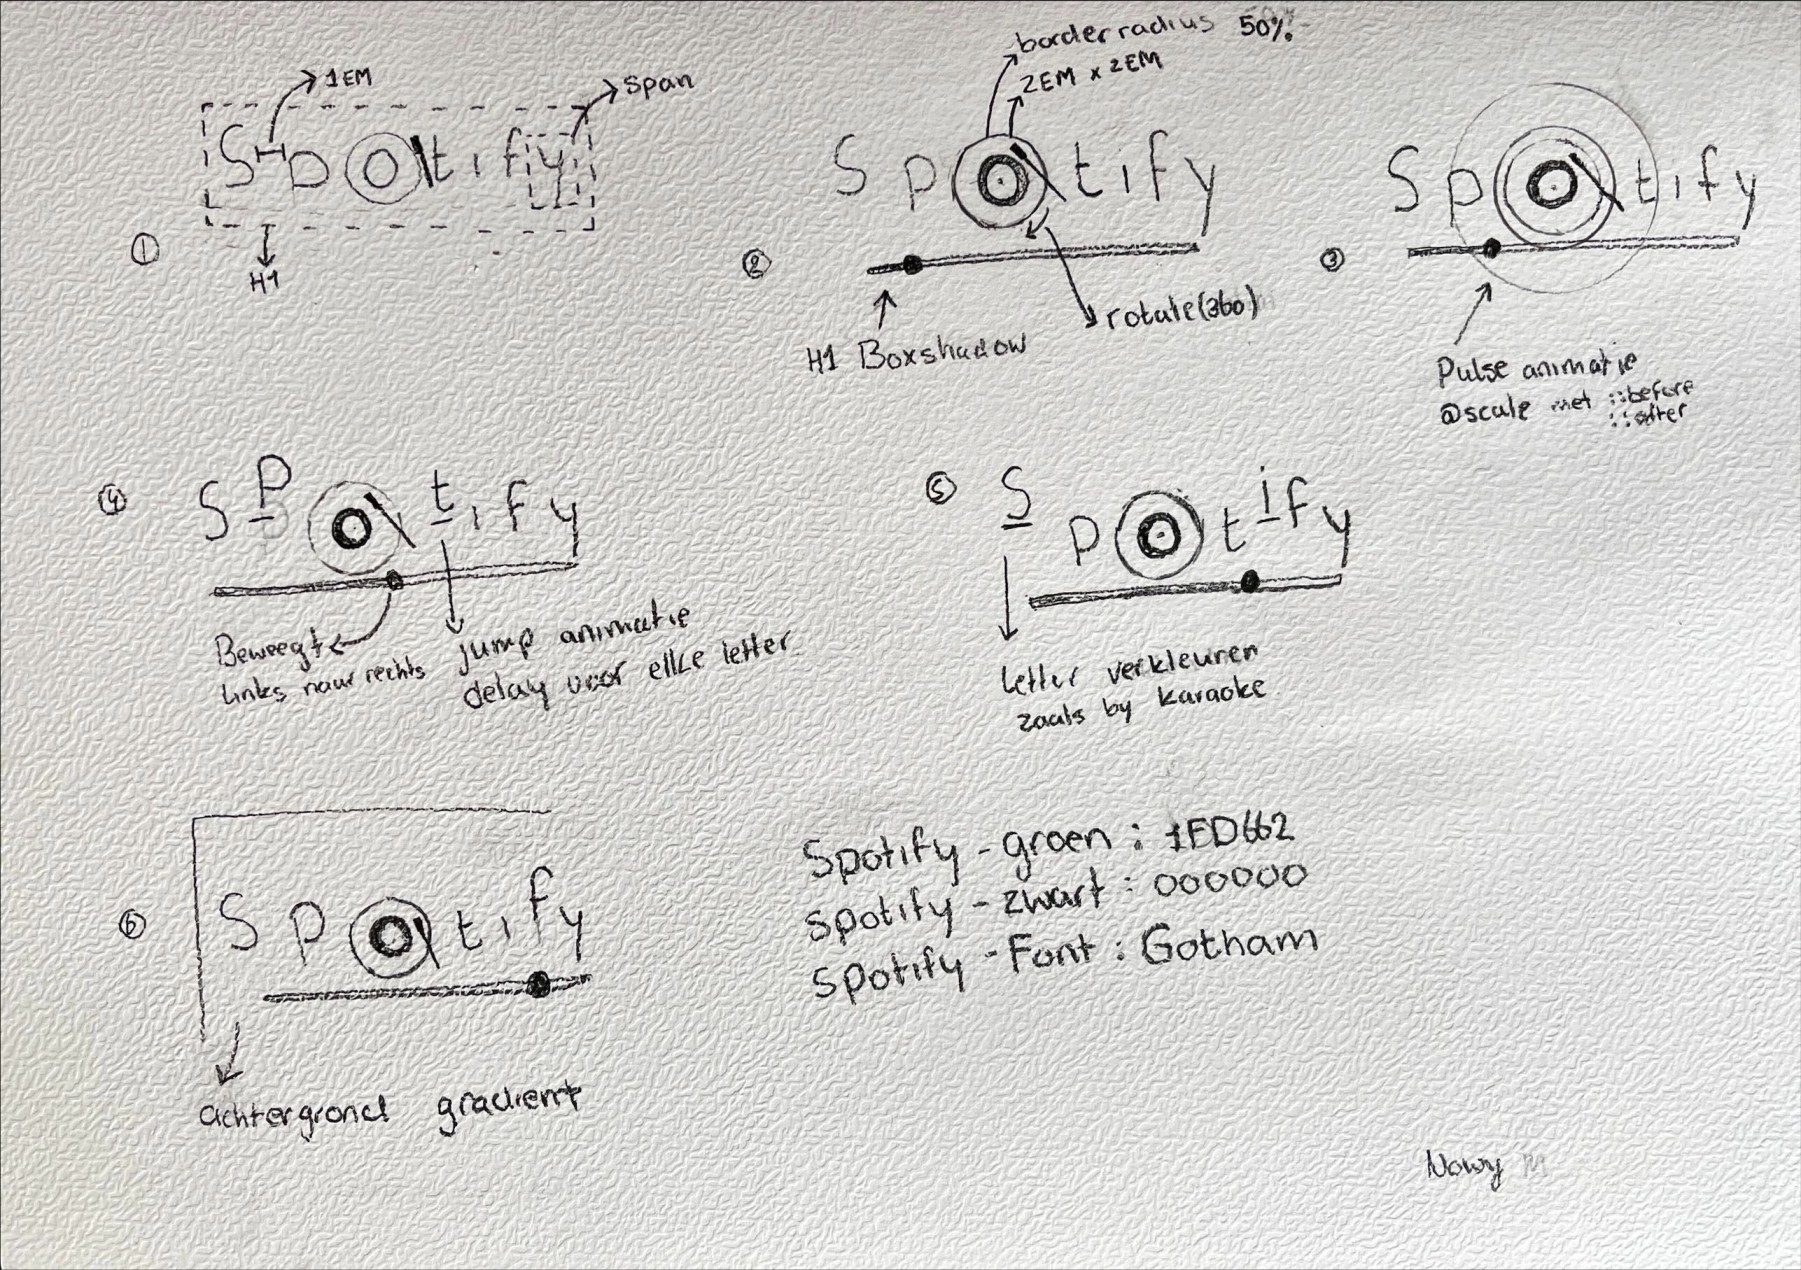 1EM
span
S p O t i f y
①
H1
border radius 50%
2EM x 2EM
S p O t i f y
②
H1 Boxshadow
rotate(360)
S p O t i f y
③
Pulse animatie
@scale met ::before
::after
④
S P O t i f y
Beweegt
links naar rechts
jump animatie
delay voor elke letter
⑤
S p O t i f y
letter verkleuren
zoals by karaoke
⑥
S P O t i f y
achtergrond gradient
Spotify-groen : 1ED662
spotify-zwart : 000000
spotify-Font : Gotham
Nowy M